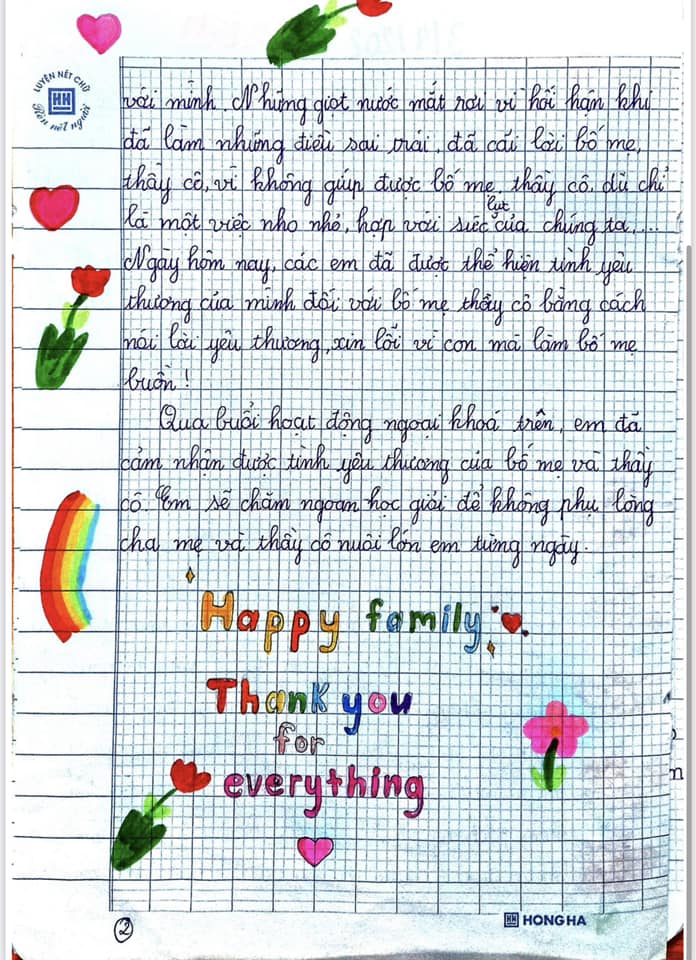 LUYỆN NÉT CHỮ
HH
Rèn nết người
với mình. Những giọt nước mắt rơi vì hối hận khi
đã làm những điều sai trái, đã cãi lời bố mẹ,
thầy cô, vì không giúp được bố mẹ, thầy cô dù chỉ
là một việc nho nhỏ, hợp với sức lực của chúng ta,...
Ngày hôm nay, các em đã được thể hiện tình yêu
thương của mình đối với bố mẹ thầy cô bằng cách
nói lời yêu thương, xin lỗi vì con mà làm bố mẹ
buồn!
Qua buổi hoạt động ngoại khoá trên, em đã
cảm nhận được tình yêu thương của bố mẹ và thầy
cô. Em sẽ chăm ngoan học giỏi để không phụ lòng
cha mẹ và thầy cô nuôi lớn em từng ngày.
Happy family
Thank you
for
everything
2
HH HONG HA